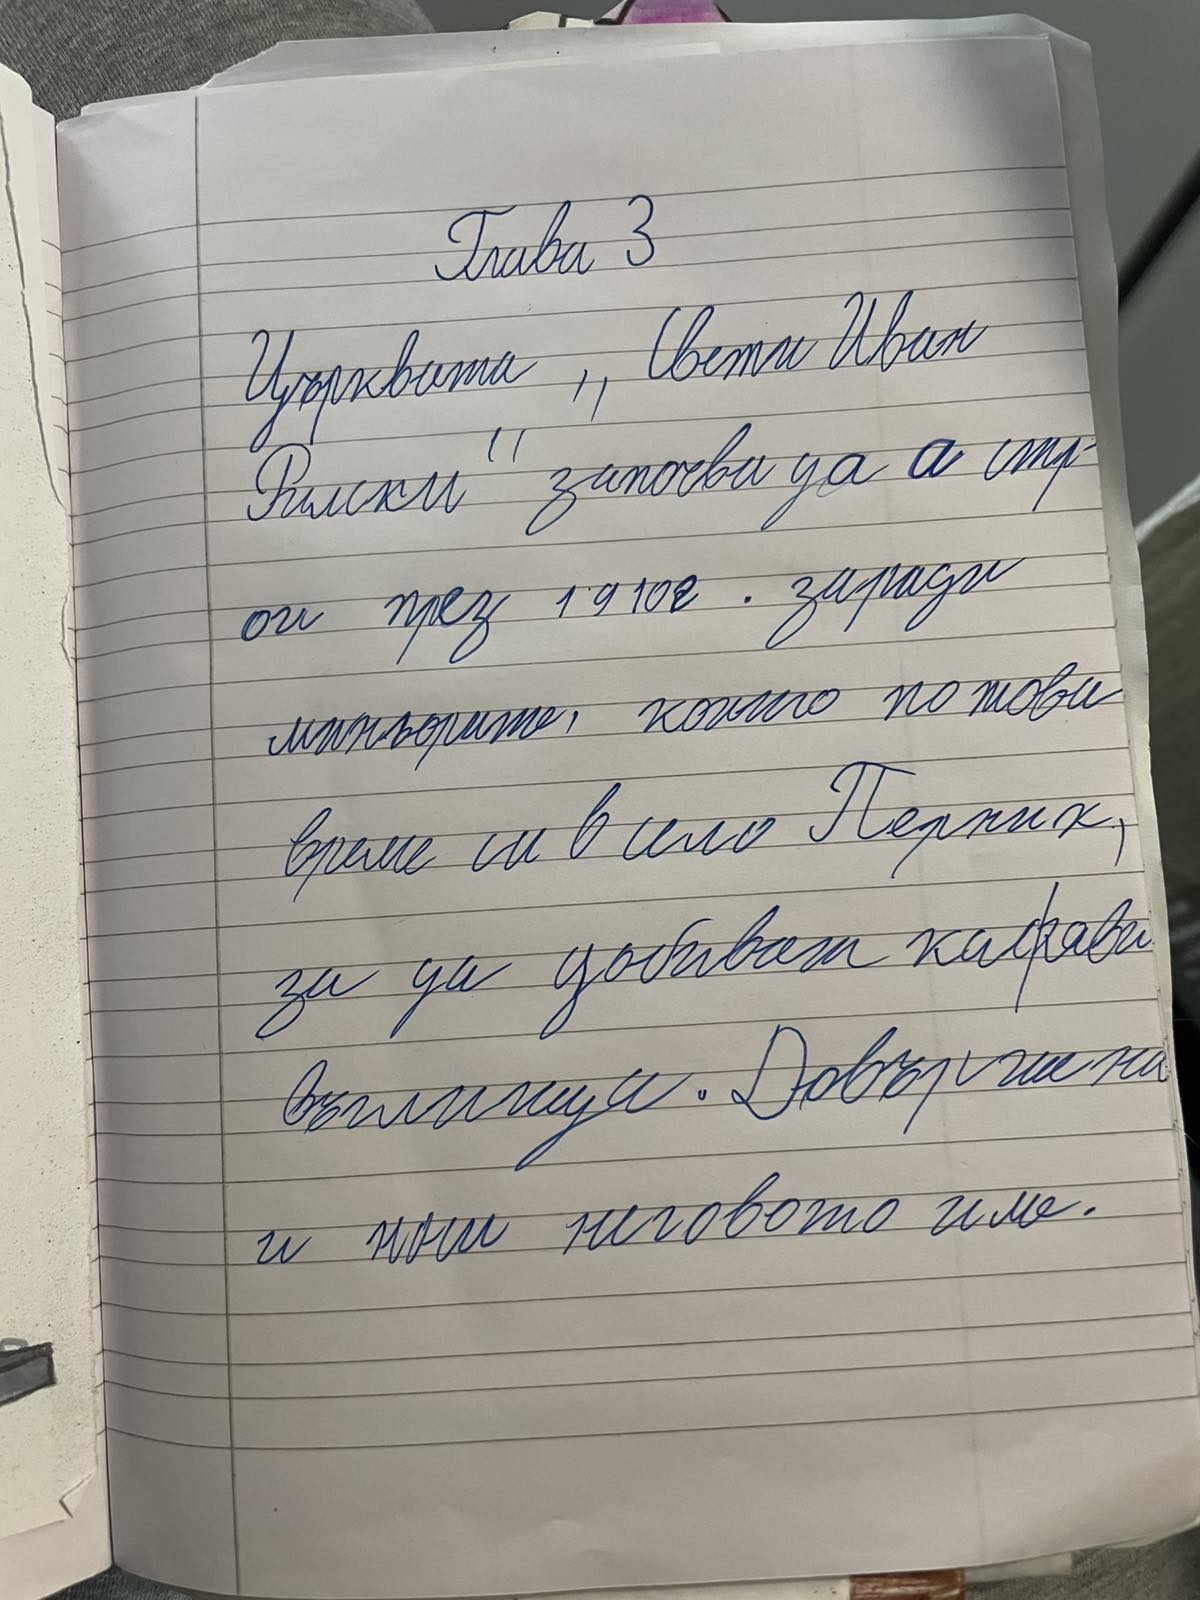 Глава 3
Църквата „Свети Иван
Рилски" започва да а стр-
ои през 1910г. заради
миньорите, които по това
време са в село Перник,
за да добиват кафяви
въглища. Довършена
и носи неговото име.